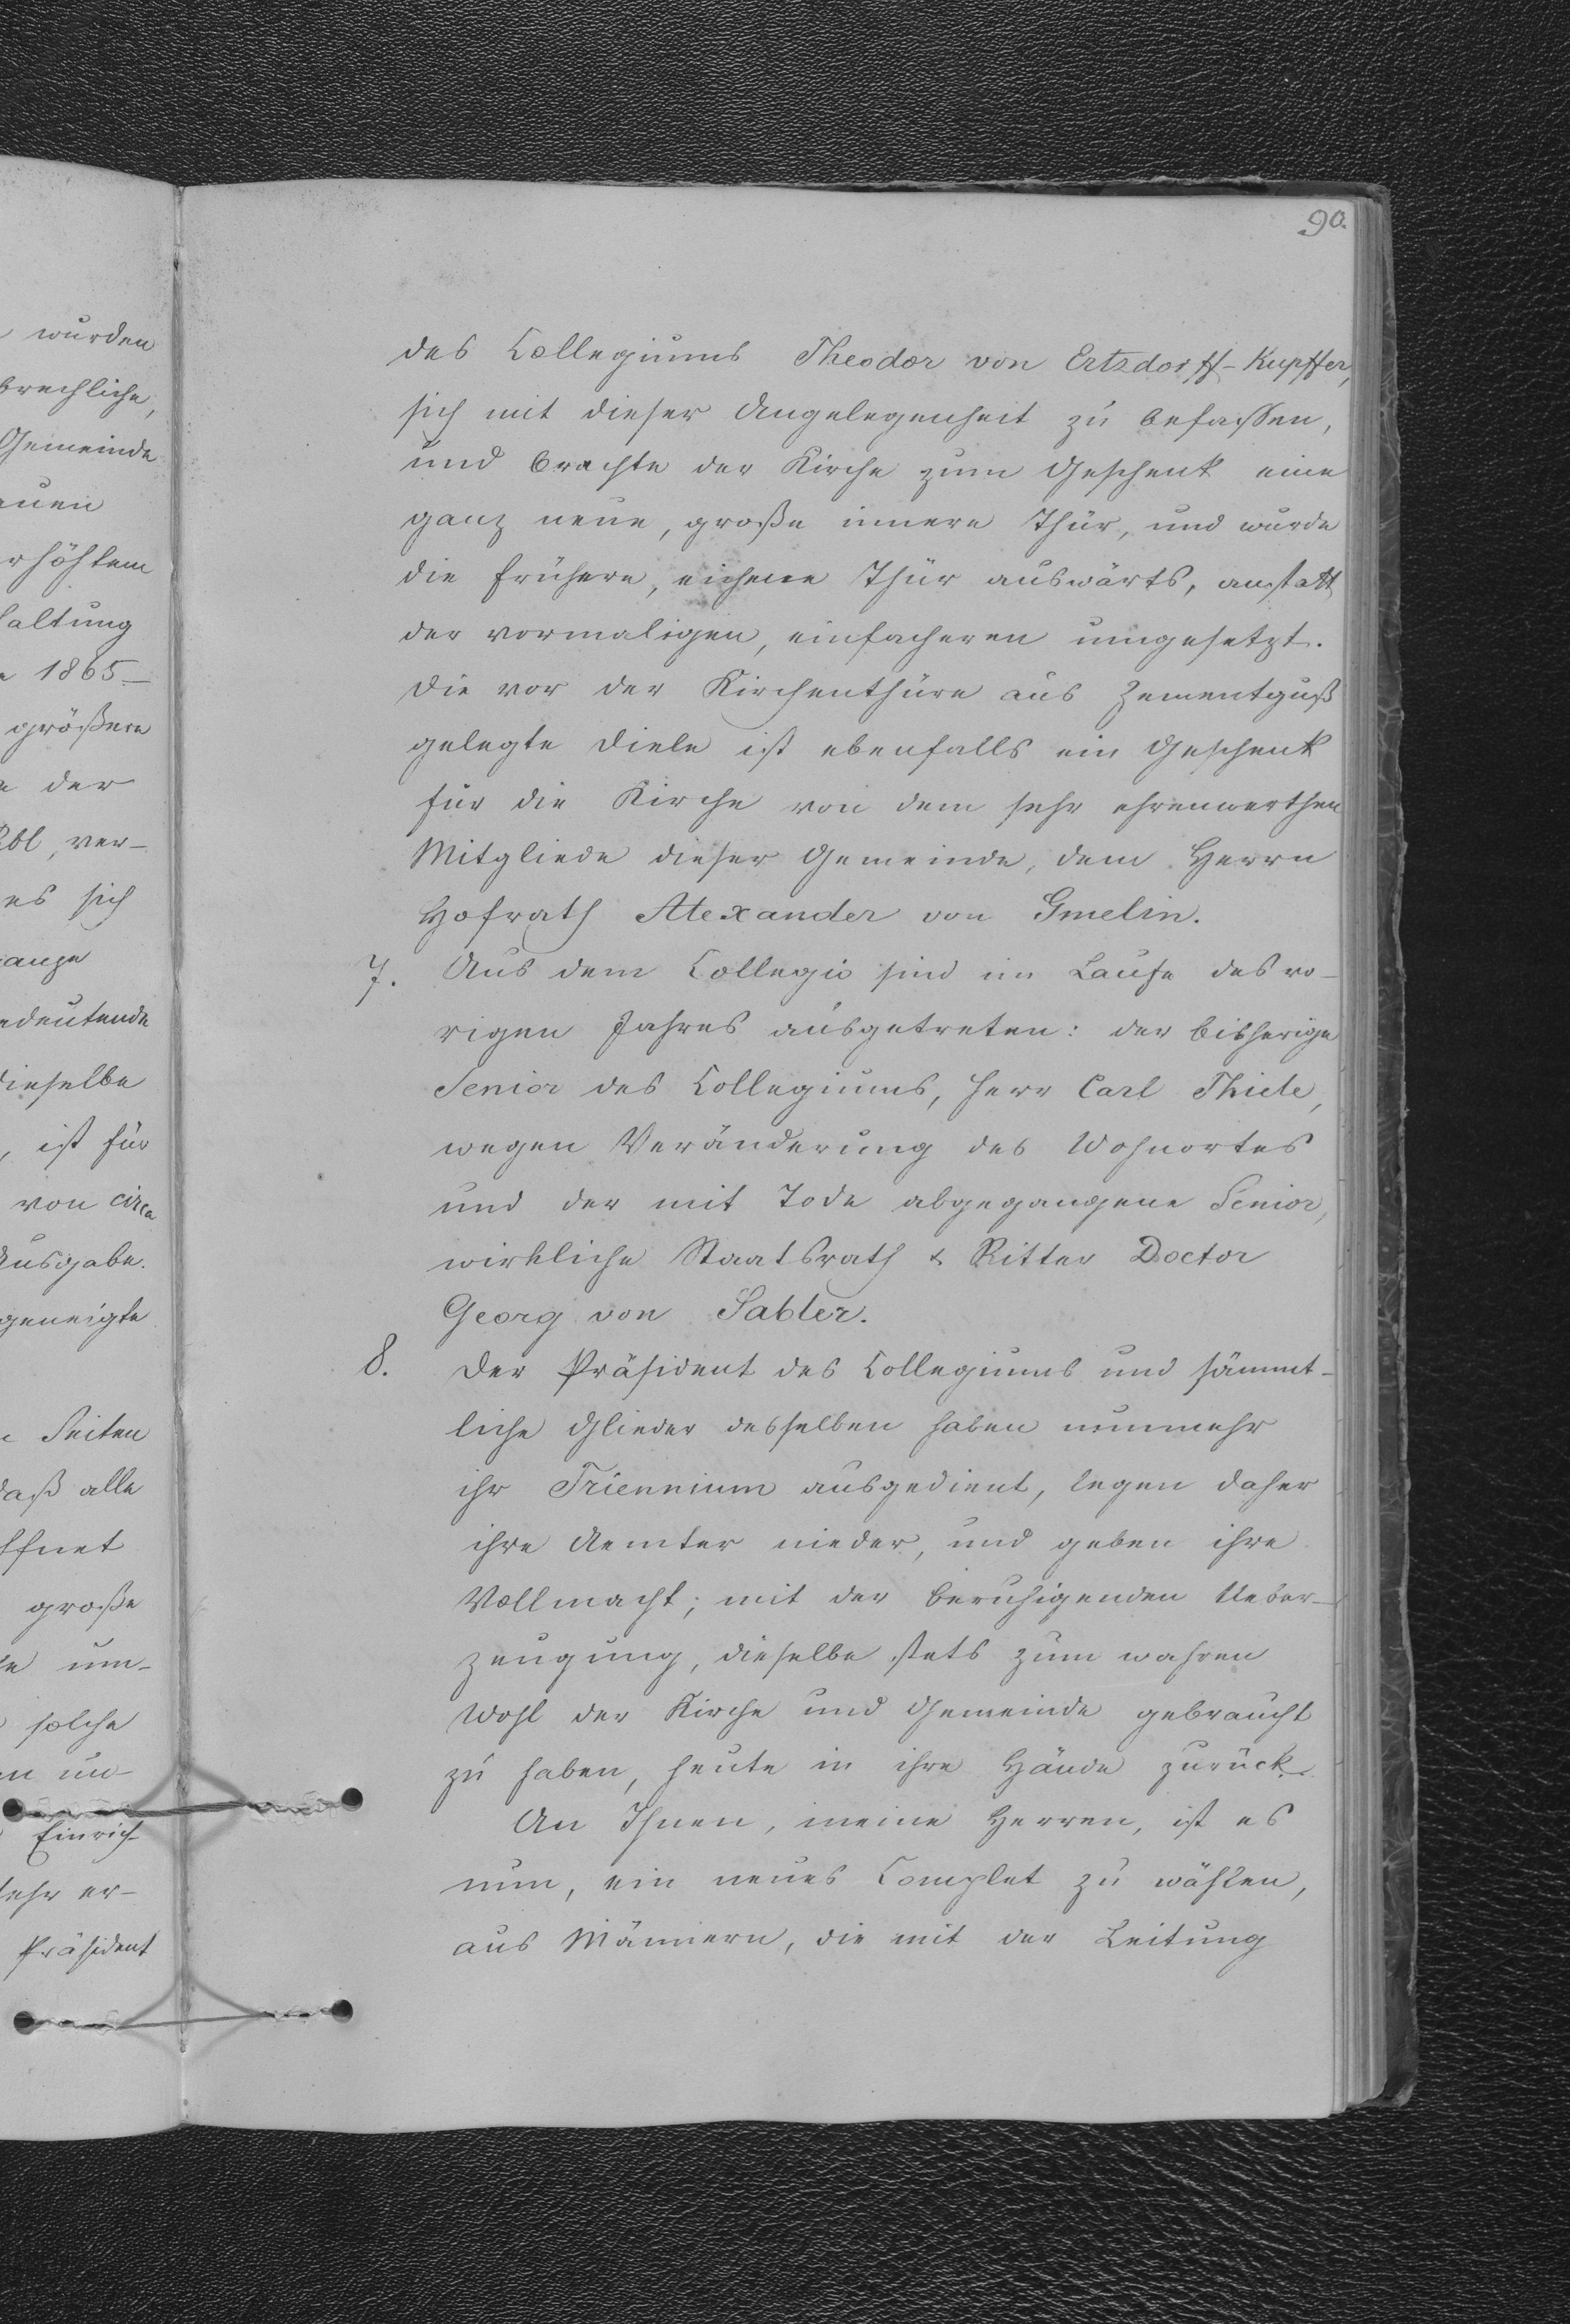 90.
des Collegiums Theodor von Ertzdorff-Kupffer,
sich mit dieser Angelegenheit zu befassen,
und brachte der Kirche zum Geschenk eine
ganz neue, große innere Thür, und wurde
die frühere, eichene Thür auswärts, anstatt
der vormaligen, einfacheren umgesetzt.
Die vor der Kirchenthüre aus Zementguß
gelegte Diele ist ebenfalls ein Geschenk
für die Kirche von dem sehr ehrenwerthen
Mitgliede dieser Gemeinde, dem Herrn
Hofrath Alexander von Gmelin.
7. Aus dem Collegio sind im Laufe des vo-
rigen Jahres ausgetreten: der bisherige
Senior des Collegiums, Herr Carl Thiele,
wegen Veränderung des Wohnortes
und der mit Tode abgegangene Senior,
wirkliche Staatsrath & Ritter Doctor
Georg von Sabler.
8. Der Präsident des Collegiums und sämmt-
liche Glieder desselben haben nunmehr
ihr Triennium ausgedient, legen daher
ihre Aemter nieder, und geben ihre
Vollmacht; mit der beruhigenden Ueber-
zeugung, dieselbe stets zum wahren
Wohl der Kirche und Gemeinde gebraucht
zu haben, heute in ihre Hände zurück.
An Ihnen, meine Herren, ist es
nun, ein neues Complet zu wählen,
aus Männern, die mit der Leitung
wurden
brechliche,
Gemeinde
rhöhtem
haltung
1865_
größere
der
Rbl, ver-
es sich
edeutende
dieselbe
, ist für
von circa
Ausgabe.
geneigte
Seiten
daß alle
ffnet
große
um-
solche
un-
Einrich-
sehr er-
Präsident